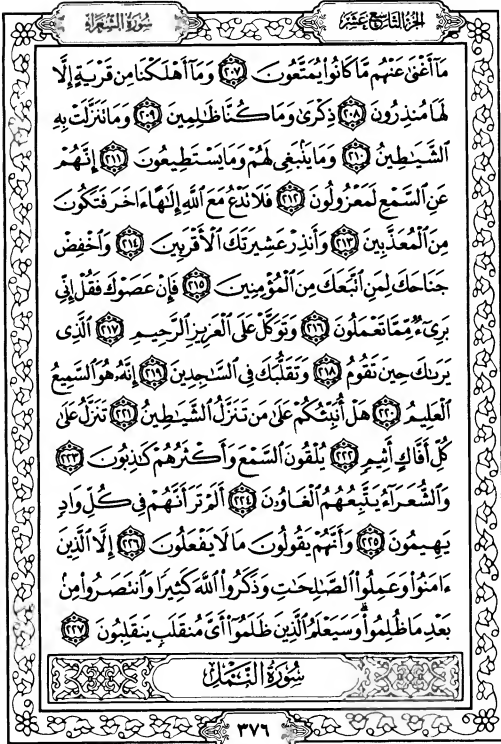 سُورَةُ الشُّعَرَاءِ الجُزْءُ التَّاسِعَ عَشَرَ
مَآ أَغْنَىٰ عَنْهُم مَّا كَانُوا۟ يُمَتَّعُونَ ٢٠٧ وَمَآ أَهْلَكْنَا مِن قَرْيَةٍ إِلَّا
لَهَا مُنذِرُونَ ٢٠٨ ذِكْرَىٰ وَمَا كُنَّا ظَـٰلِمِينَ ٢٠٩ وَمَا تَنَزَّلَتْ بِهِ
ٱلشَّيَـٰطِينُ ٢١٠ وَمَا يَنۢبَغِى لَهُمْ وَمَا يَسْتَطِيعُونَ ٢١١ إِنَّهُمْ
عَنِ ٱلسَّمْعِ لَمَعْزُولُونَ ٢١٢ فَلَا تَدْعُ مَعَ ٱللَّهِ إِلَـٰهًا ءَاخَرَ فَتَكُونَ
مِنَ ٱلْمُعَذَّبِينَ ٢١٣ وَأَنذِرْ عَشِيرَتَكَ ٱلْأَقْرَبِينَ ٢١٤ وَٱخْفِضْ
جَنَاحَكَ لِمَنِ ٱتَّبَعَكَ مِنَ ٱلْمُؤْمِنِينَ ٢١٥ فَإِنْ عَصَوْكَ فَقُلْ إِنِّى
بَرِىٓءٌ مِّمَّا تَعْمَلُونَ ٢١٦ وَتَوَكَّلْ عَلَى ٱلْعَزِيزِ ٱلرَّحِيمِ ٢١٧ ٱلَّذِى
يَرَىٰكَ حِينَ تَقُومُ ٢١٨ وَتَقَلُّبَكَ فِى ٱلسَّـٰجِدِينَ ٢١٩ إِنَّهُۥ هُوَ ٱلسَّمِيعُ
ٱلْعَلِيمُ ٢٢٠ هَلْ أُنَبِّئُكُمْ عَلَىٰ مَن تَنَزَّلُ ٱلشَّيَـٰطِينُ ٢٢١ تَنَزَّلُ عَلَىٰ
كُلِّ أَفَّاكٍ أَثِيمٍ ٢٢٢ يُلْقُونَ ٱلسَّمْعَ وَأَكْثَرُهُمْ كَـٰذِبُونَ ٢٢٣
وَٱلشُّعَرَآءُ يَتَّبِعُهُمُ ٱلْغَاوُۥنَ ٢٢٤ أَلَمْ تَرَ أَنَّهُمْ فِى كُلِّ وَادٍ
يَهِيمُونَ ٢٢٥ وَأَنَّهُمْ يَقُولُونَ مَا لَا يَفْعَلُونَ ٢٢٦ إِلَّا ٱلَّذِينَ
ءَامَنُوا۟ وَعَمِلُوا۟ ٱلصَّـٰلِحَـٰتِ وَذَكَرُوا۟ ٱللَّهَ كَثِيرًا وَٱنتَصَرُوا۟ مِنۢ
بَعْدِ مَا ظُلِمُوا۟ ۗ وَسَيَعْلَمُ ٱلَّذِينَ ظَلَمُوٓا۟ أَىَّ مُنقَلَبٍ يَنقَلِبُونَ ٢٢٧
سُورَةُ النَّمْلِ
٣٧٦